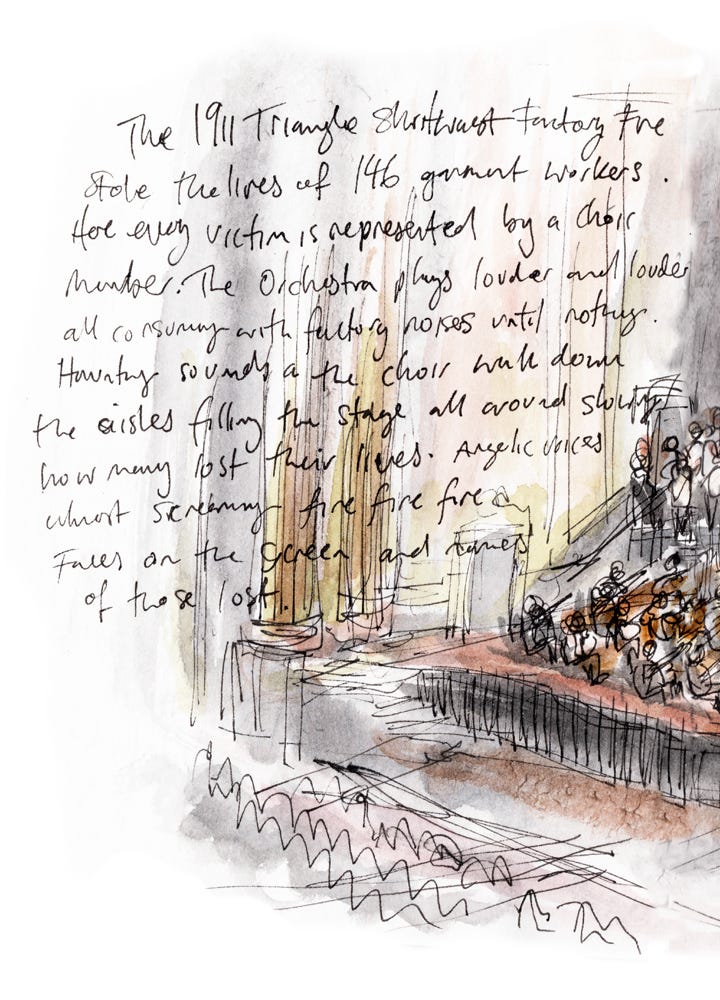 The 1911 Triangle Shirtwaist Factory Fire
Stole the lives of 146 garment workers.
Here every victim is represented by a choir
member. The Orchestra plays louder and louder
all consuming with factory noises until nothing.
Haunting sounds a the choir walk down
the aisles filling the stage all around showing
how many lost their lives. Angelic voices
almost screaming fire fire fire
Faces on the screen and names
of those lost.